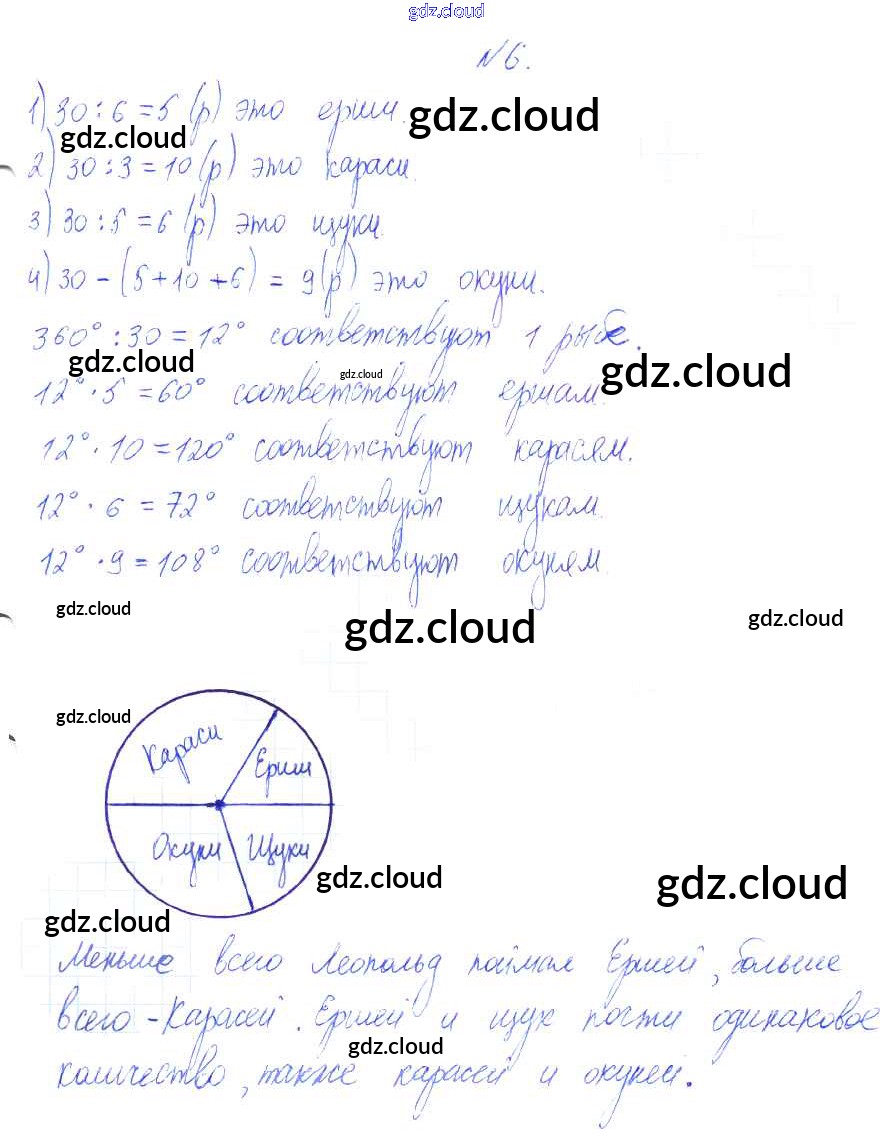 gdz.cloud
№6.
1) 30 : 6 = 5 (р) это ерши.
gdz.cloud
gdz.cloud
2) 30 : 3 = 10 (р) это караси.
3) 30 : 5 = 6 (р) это щуки.
4) 30 - (5 + 10 + 6) = 9 (р) это окуни.
360° : 30 = 12° соответствуют 1 рыбе.
gdz.cloud
gdz.cloud
gdz.cloud
12° · 5 = 60° соответствуют ершам.
12° · 10 = 120° соответствуют карасям.
12° · 6 = 72° соответствуют щукам.
12° · 9 = 108° соответствуют окуням.
gdz.cloud
gdz.cloud
gdz.cloud
gdz.cloud
Караси
Ерши
Окуни
Щуки
gdz.cloud
gdz.cloud
gdz.cloud
Меньше всего Леопольд поймал Ершей, больше
всего - Карасей. Ершей и щук почти одинаковое
gdz.cloud
количество, также карасей и окуней.